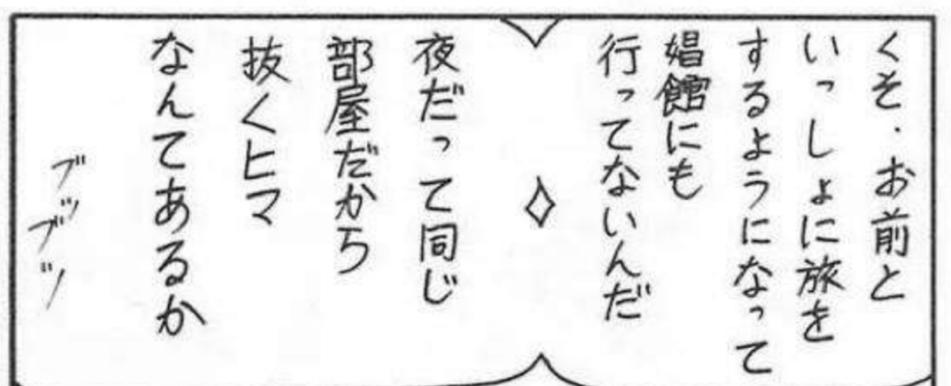 くそ・お前と
いっしょに旅を
するようになって
娼館にも
行ってないんだ
夜だって同じ
部屋だから
抜くヒマ
なんてあるか
ブツ
ブツ